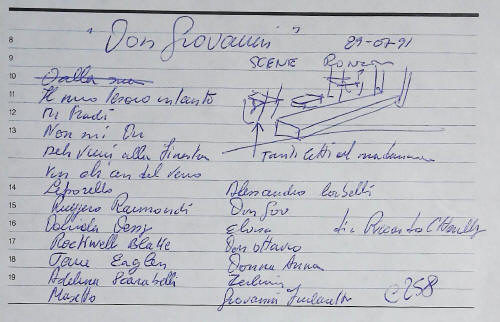 "Don Giovanni" 29-07-91
8
9
SCENE
10
Dalla sua
11
Il mio tesoro intanto
12
Mi tradì
13
Non mi Dir
Deh vieni alla finestra
Tanti letti al
14
Leporello Alessandro Corbelli
15
Ruggero Raimondi Don Giov
16
Daniela Dessy Elvira dir Riccardo Chailly
17
Rockwell Blake Don Ottavio
18
Jane Eaglen Donna Anna
19
Adelina Scarabelli Zerlina
Masetto Giovanni Furlanetto
C258